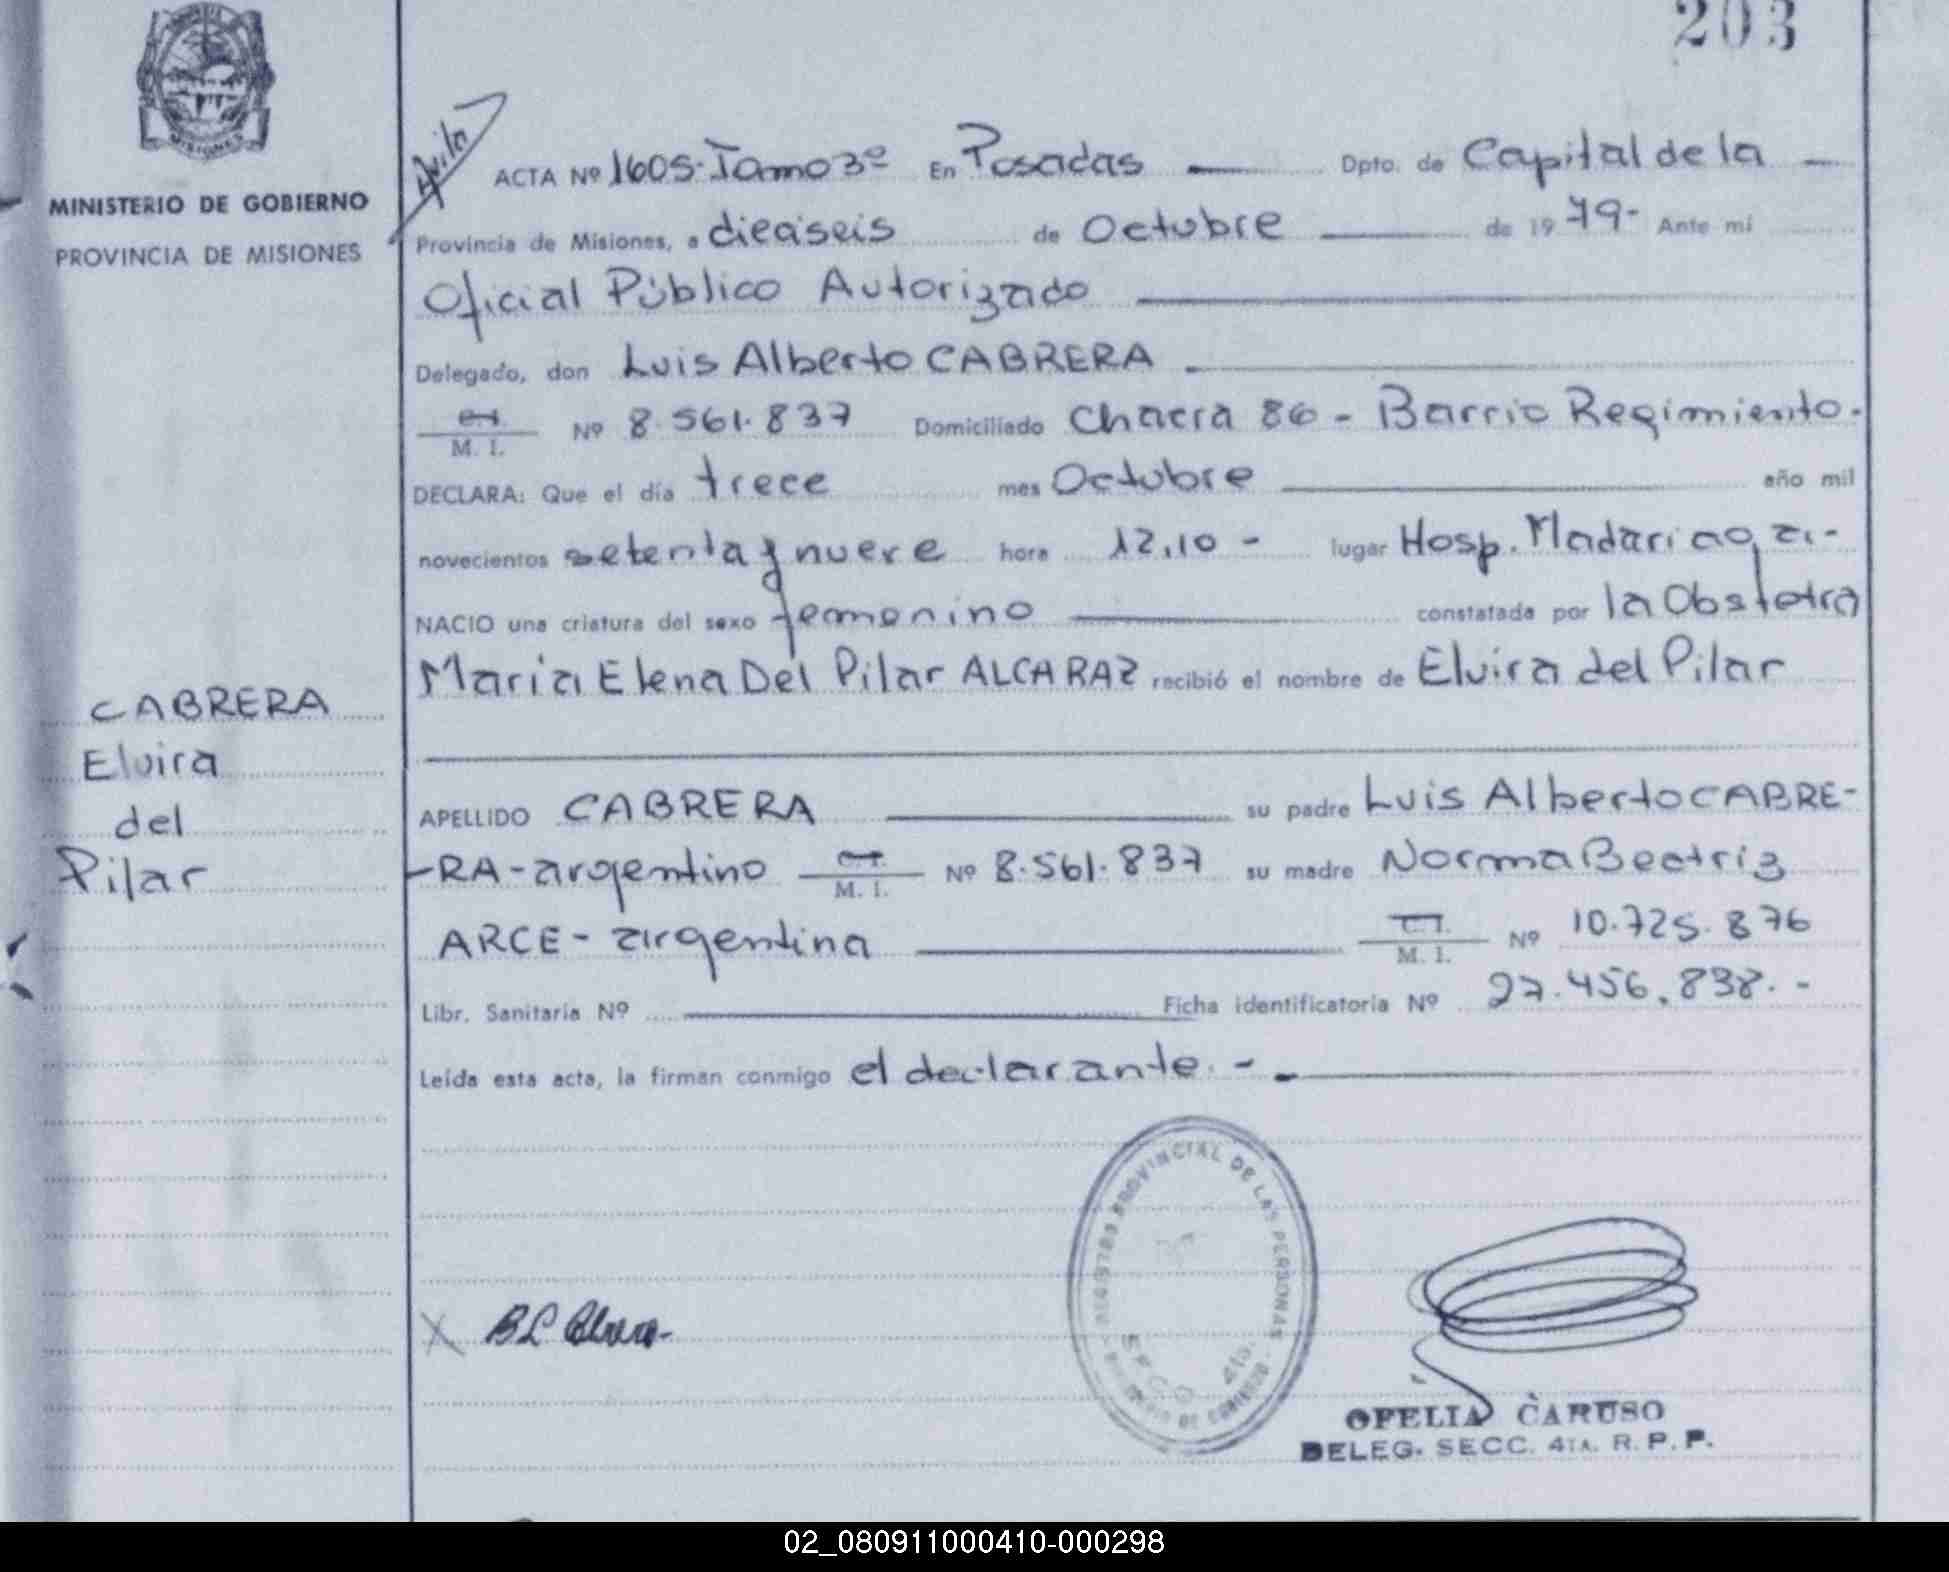 203
MISIONES
MINISTERIO DE GOBIERNO
PROVINCIA DE MISIONES
CABRERA
Elvira
del
Pilar
ACTA Nº 1605. Tomo 3º En Posadas — Dpto. de Capital de la —
Provincia de Misiones, a dieciseis de Octubre — de 1979- Ante mí
Oficial Público Autorizado —
Delegado, don Luis Alberto CABRERA —
M. I. Nº 8.561.837 Domiciliado Chacra 86 - Barrio Regimiento.
DECLARA: Que el día trece mes Octubre — año mil
novecientos setenta y nueve hora 12,10 - lugar Hosp. Madariaga.-
NACIO una criatura del sexo femenino — constatada por la Obstetra
Maria Elena Del Pilar ALCARAZ recibió el nombre de Elvira del Pilar
APELLIDO CABRERA — su padre Luis Alberto CABRE-
-RA - argentino M. I. Nº 8.561.837 su madre Norma Beatriz
ARCE - argentina — M. I. Nº 10.725.876
Libr. Sanitaria Nº — Ficha identificatoria Nº 27.456.838.-
Leída esta acta, la firman conmigo el declarante. - —
REGISTRO PROVINCIAL DE LAS PERSONAS
SECC. 4ta.
OFELIA CARUSO
DELEG. SECC. 4TA. R. P. P.
02_080911000410-000298